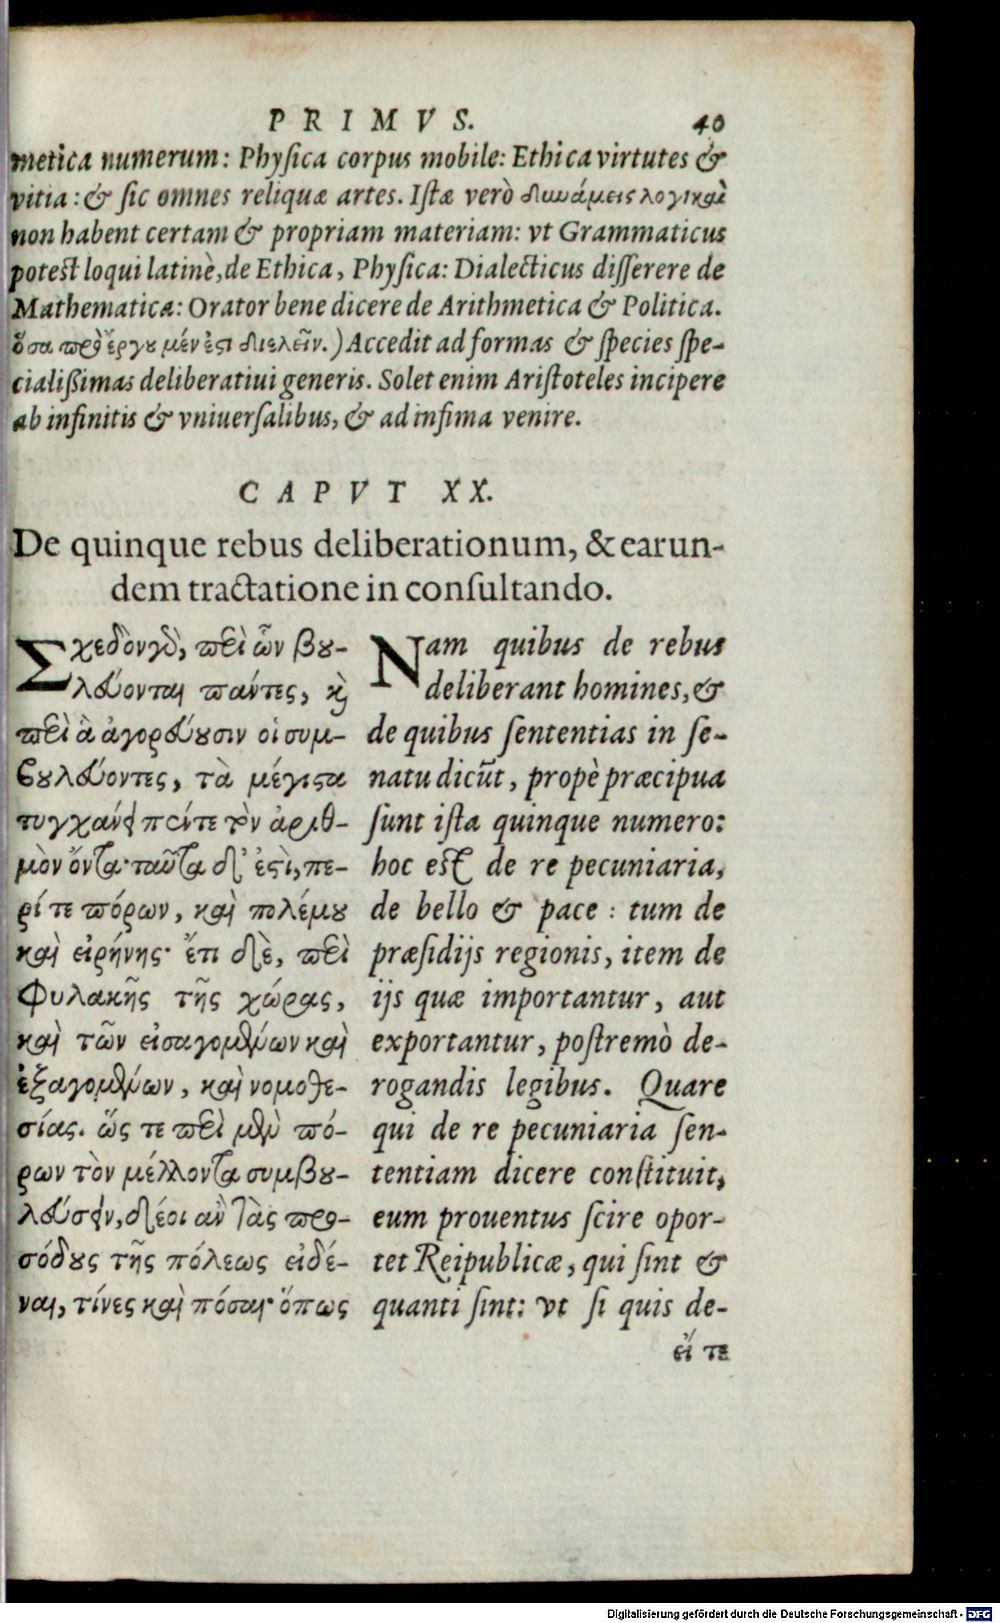 PRIMVS. 40
metica numerum: Physica corpus mobile: Ethica virtutes &
vitia: & sic omnes reliquæ artes. Istæ verò δυνάμεις λογικαὶ
non habent certam & propriam materiam: vt Grammaticus
potest loqui latinè, de Ethica, Physica: Dialecticus disserere de
Mathematica: Orator bene dicere de Arithmetica & Politica.
ὅσα πρὸ ἔργου μέν ἐστι διελεῖν.) Accedit ad formas & species spe-
cialissimas deliberatiui generis. Solet enim Aristoteles incipere
ab infinitis & vniuersalibus, & ad infima venire.
CAPVT XX.
De quinque rebus deliberationum, & earun-
dem tractatione in consultando.
Σχεδὸν γὸ, περὶ ὧν βου-
λεύονται πάντες, καὶ
περὶ ἃ ἀγορεύουσιν οἱ συμ-
βουλεύοντες, τὰ μέγιστα
τυγχάνει πέντε τὸν ἀριθ-
μὸν ὄντα· ταῦτα δ' ἐστὶ, πε-
ρί τε πόρων, καὶ πολέμου
καὶ εἰρήνης· ἔτι δὲ, περὶ
φυλακῆς τῆς χώρας,
καὶ τῶν εἰσαγομένων καὶ
ἐξαγομένων, καὶ νομοθε-
σίας. ὥς τε περὶ μὲν πό-
ρων τὸν μέλλοντα συμβου-
λεύσειν, δέοι ἂν τὰς προ-
σόδους τῆς πόλεως εἰδέ-
ναι, τίνες καὶ πόσαι· ὅπως
Nam quibus de rebus
deliberant homines, &
de quibus sententias in se-
natu dicūt, propè præcipua
sunt ista quinque numero:
hoc est de re pecuniaria,
de bello & pace: tum de
præsidijs regionis, item de
ijs quæ importantur, aut
exportantur, postremò de-
rogandis legibus. Quare
qui de re pecuniaria sen-
tentiam dicere constituit,
eum prouentus scire opor-
tet Reipublicæ, qui sint &
quanti sint: vt si quis de-
εἴ τε
Digitalisierung gefördert durch die Deutsche Forschungsgemeinschaft - DFG